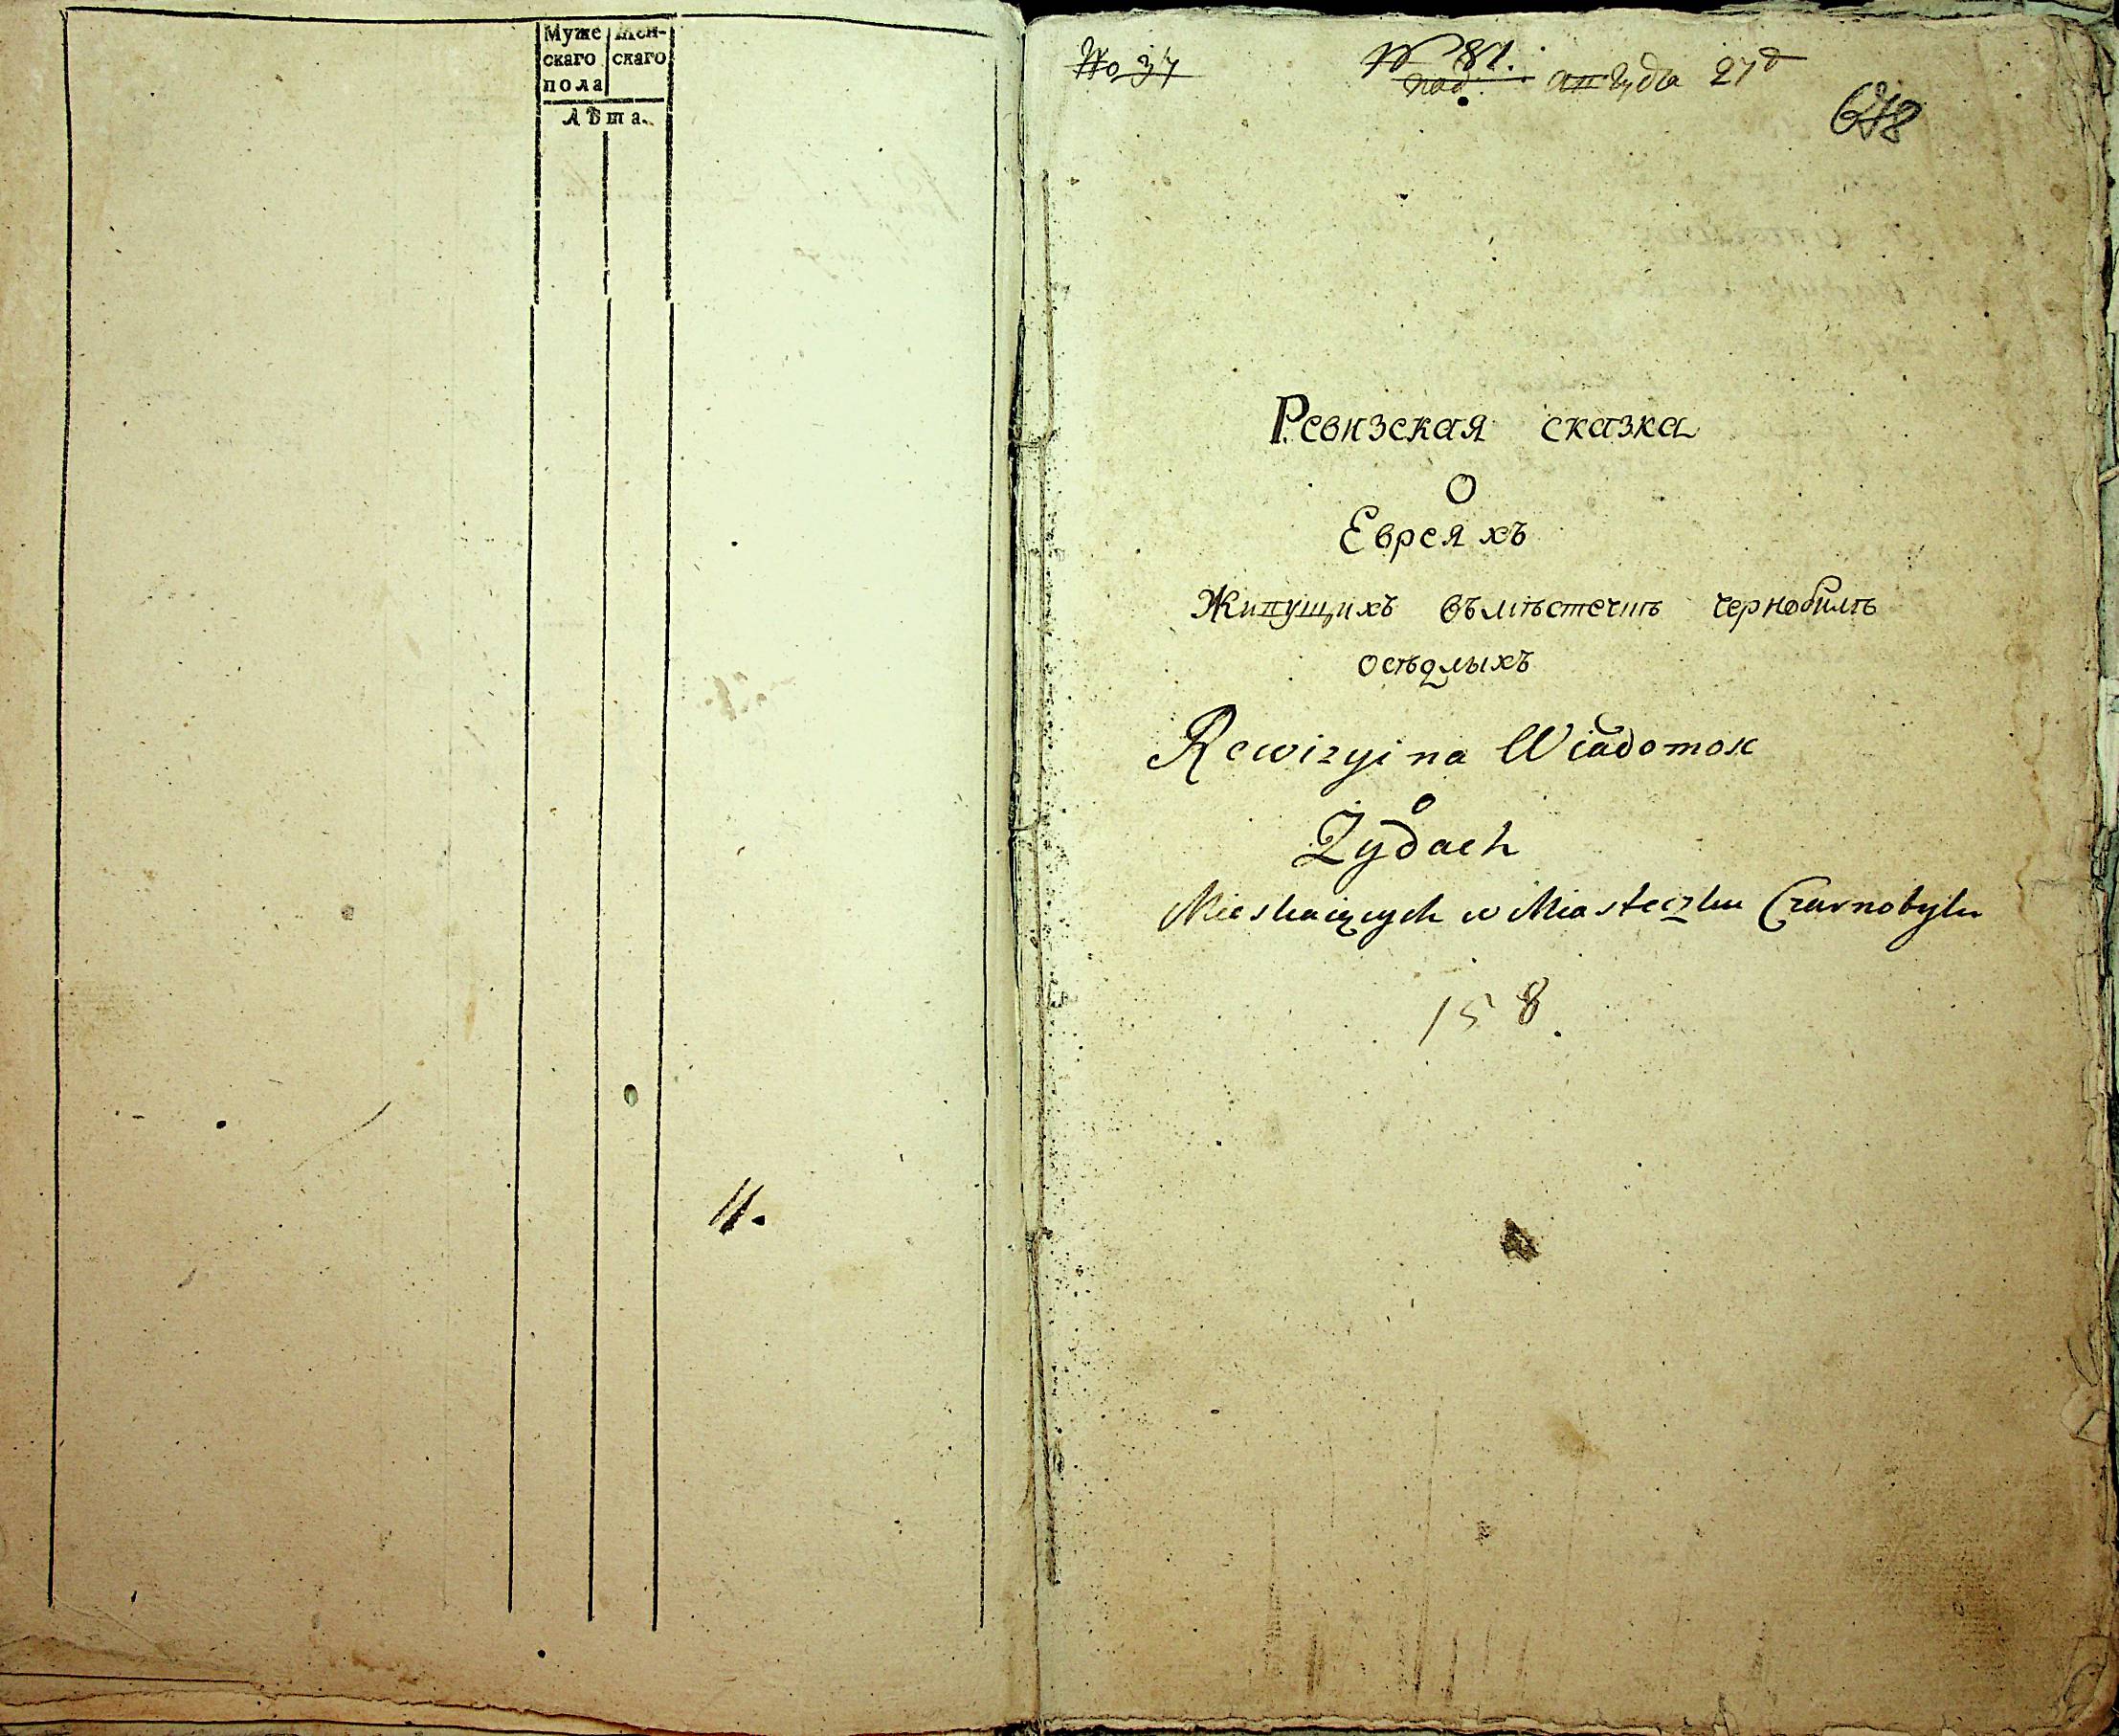 Муже
скаго
пола
Жен-
скаго
Лѣта.
11.
No 37
№ 81.
под. апрѣда 27д
648
Ревизская сказка
О
Евреяхъ
Живущихъ въмѣстечнѣ чернобилѣ
осѣдлыхъ
Rewizyina Wiadomosc
o
Zydach
Mieskaiących w Miasteczku Czarnobylu
158.